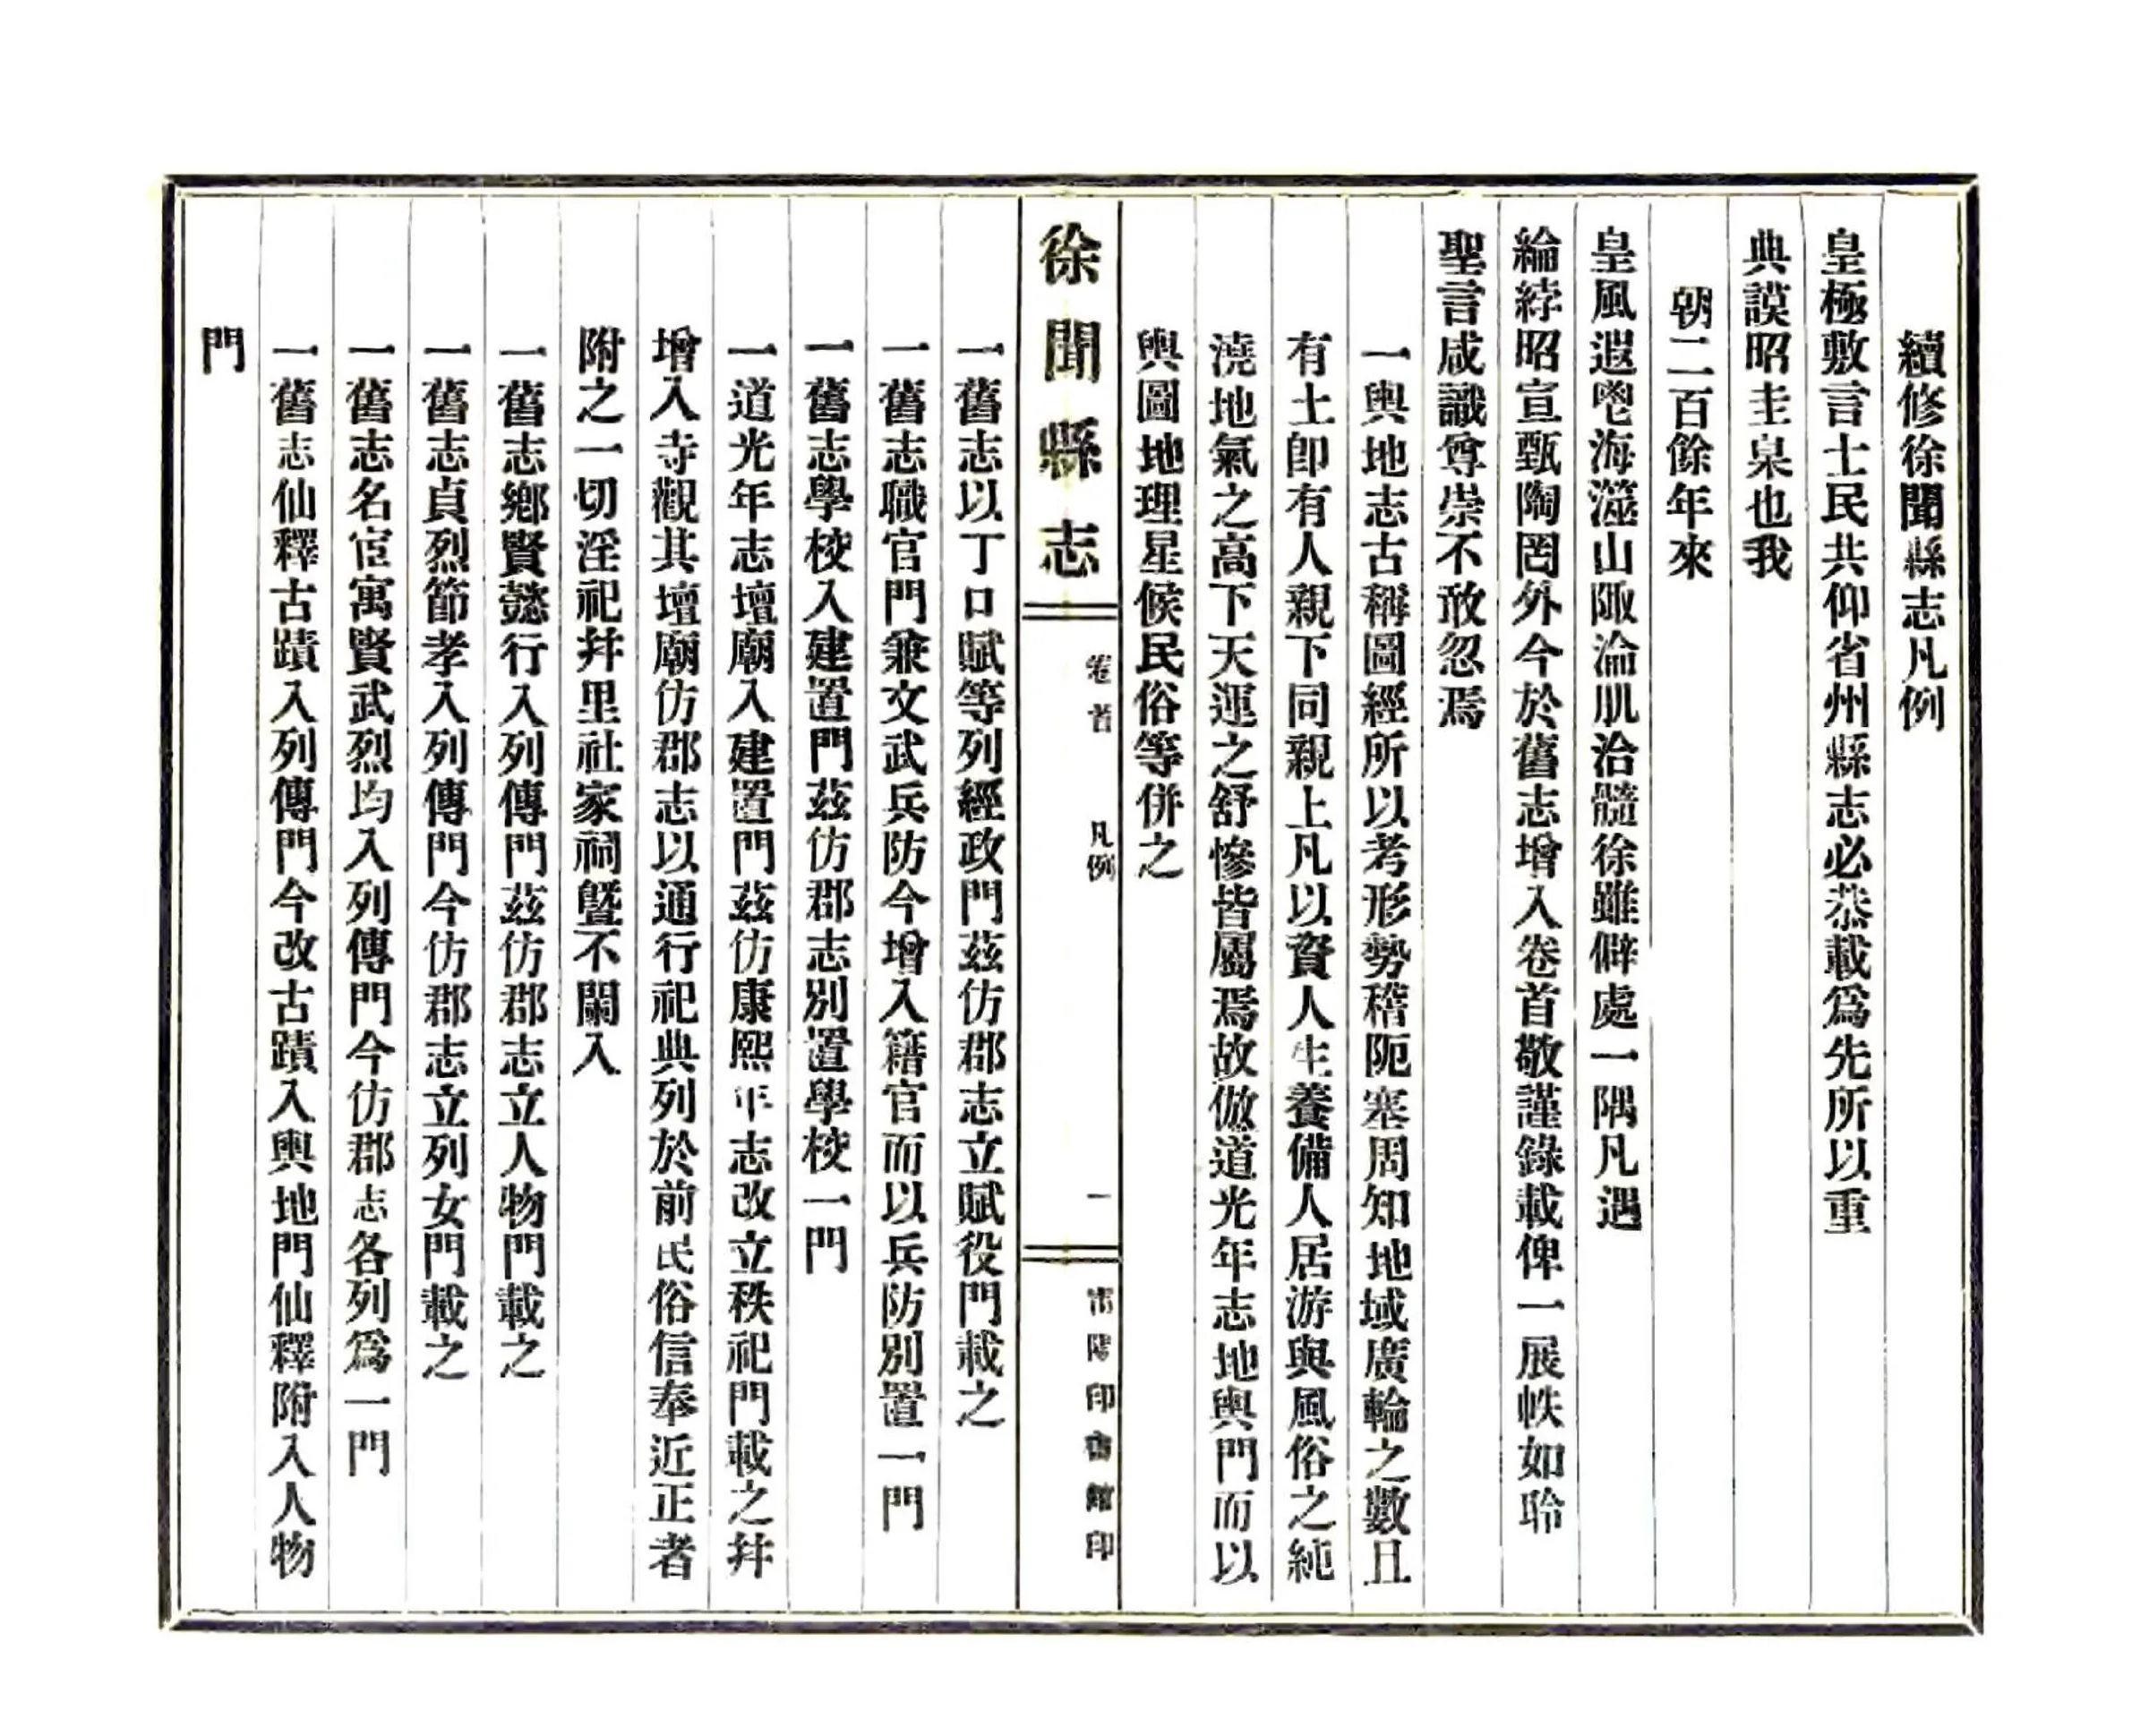 續修徐聞縣志凡例
皇極敷言士民共仰省州縣志必恭載爲先所以重
典謨昭圭臬也我
朝二百餘年來
皇風遐鬯海澨山陬淪肌洽髓徐雖僻處一隅凡遇
綸綍昭宣甄陶罔外今於舊志增入卷首敬謹錄載俾一展帙如聆
聖言咸識尊崇不敢忽焉
一輿地志古稱圖經所以考形勢稽阨塞周知地域廣輪之數且
有土卽有人親下同親上凡以資人生養備人居游與風俗之純
澆地氣之高下天運之舒慘皆屬焉故倣道光年志地輿門而以
輿圖地理星候民俗等併之
徐聞縣志
卷首 凡例 一 雷陽印書館印
一舊志以丁口賦等列經政門茲仿郡志立賦役門載之
一舊志職官門兼文武兵防今增入籍官而以兵防別置一門
一舊志學校入建置門茲仿郡志別置學校一門
一道光年志壇廟入建置門茲仿康熙年志改立秩祀門載之幷
增入寺觀其壇廟仿郡志以通行祀典列於前民俗信奉近正者
附之一切淫祀幷里社家祠曁不闌入
一舊志鄉賢懿行入列傳門茲仿郡志立人物門載之
一舊志貞烈節孝入列傳門今仿郡志立列女門載之
一舊志名宦寓賢武烈均入列傳門今仿郡志各列爲一門
一舊志仙釋古蹟入列傳門今改古蹟入輿地門仙釋附入人物
門